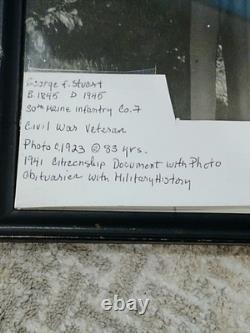 George F. Stuart
B. 1845 D 1945
30th Maine Infantry Co. F
Civil War Veteran
Photo C. 1923 @ 83 yrs.
1941 Citizenship Document with Photo
Obituaries with Military History
ebay